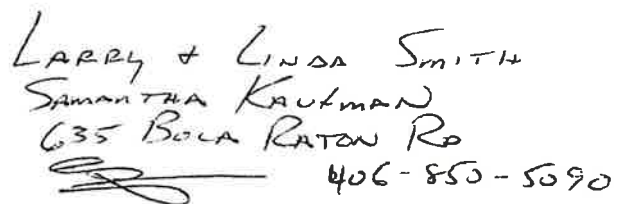 LARRY + LINDA SMITH
SAMANTHA KAUFMAN
635 BOCA RATON RD
406-850-5090